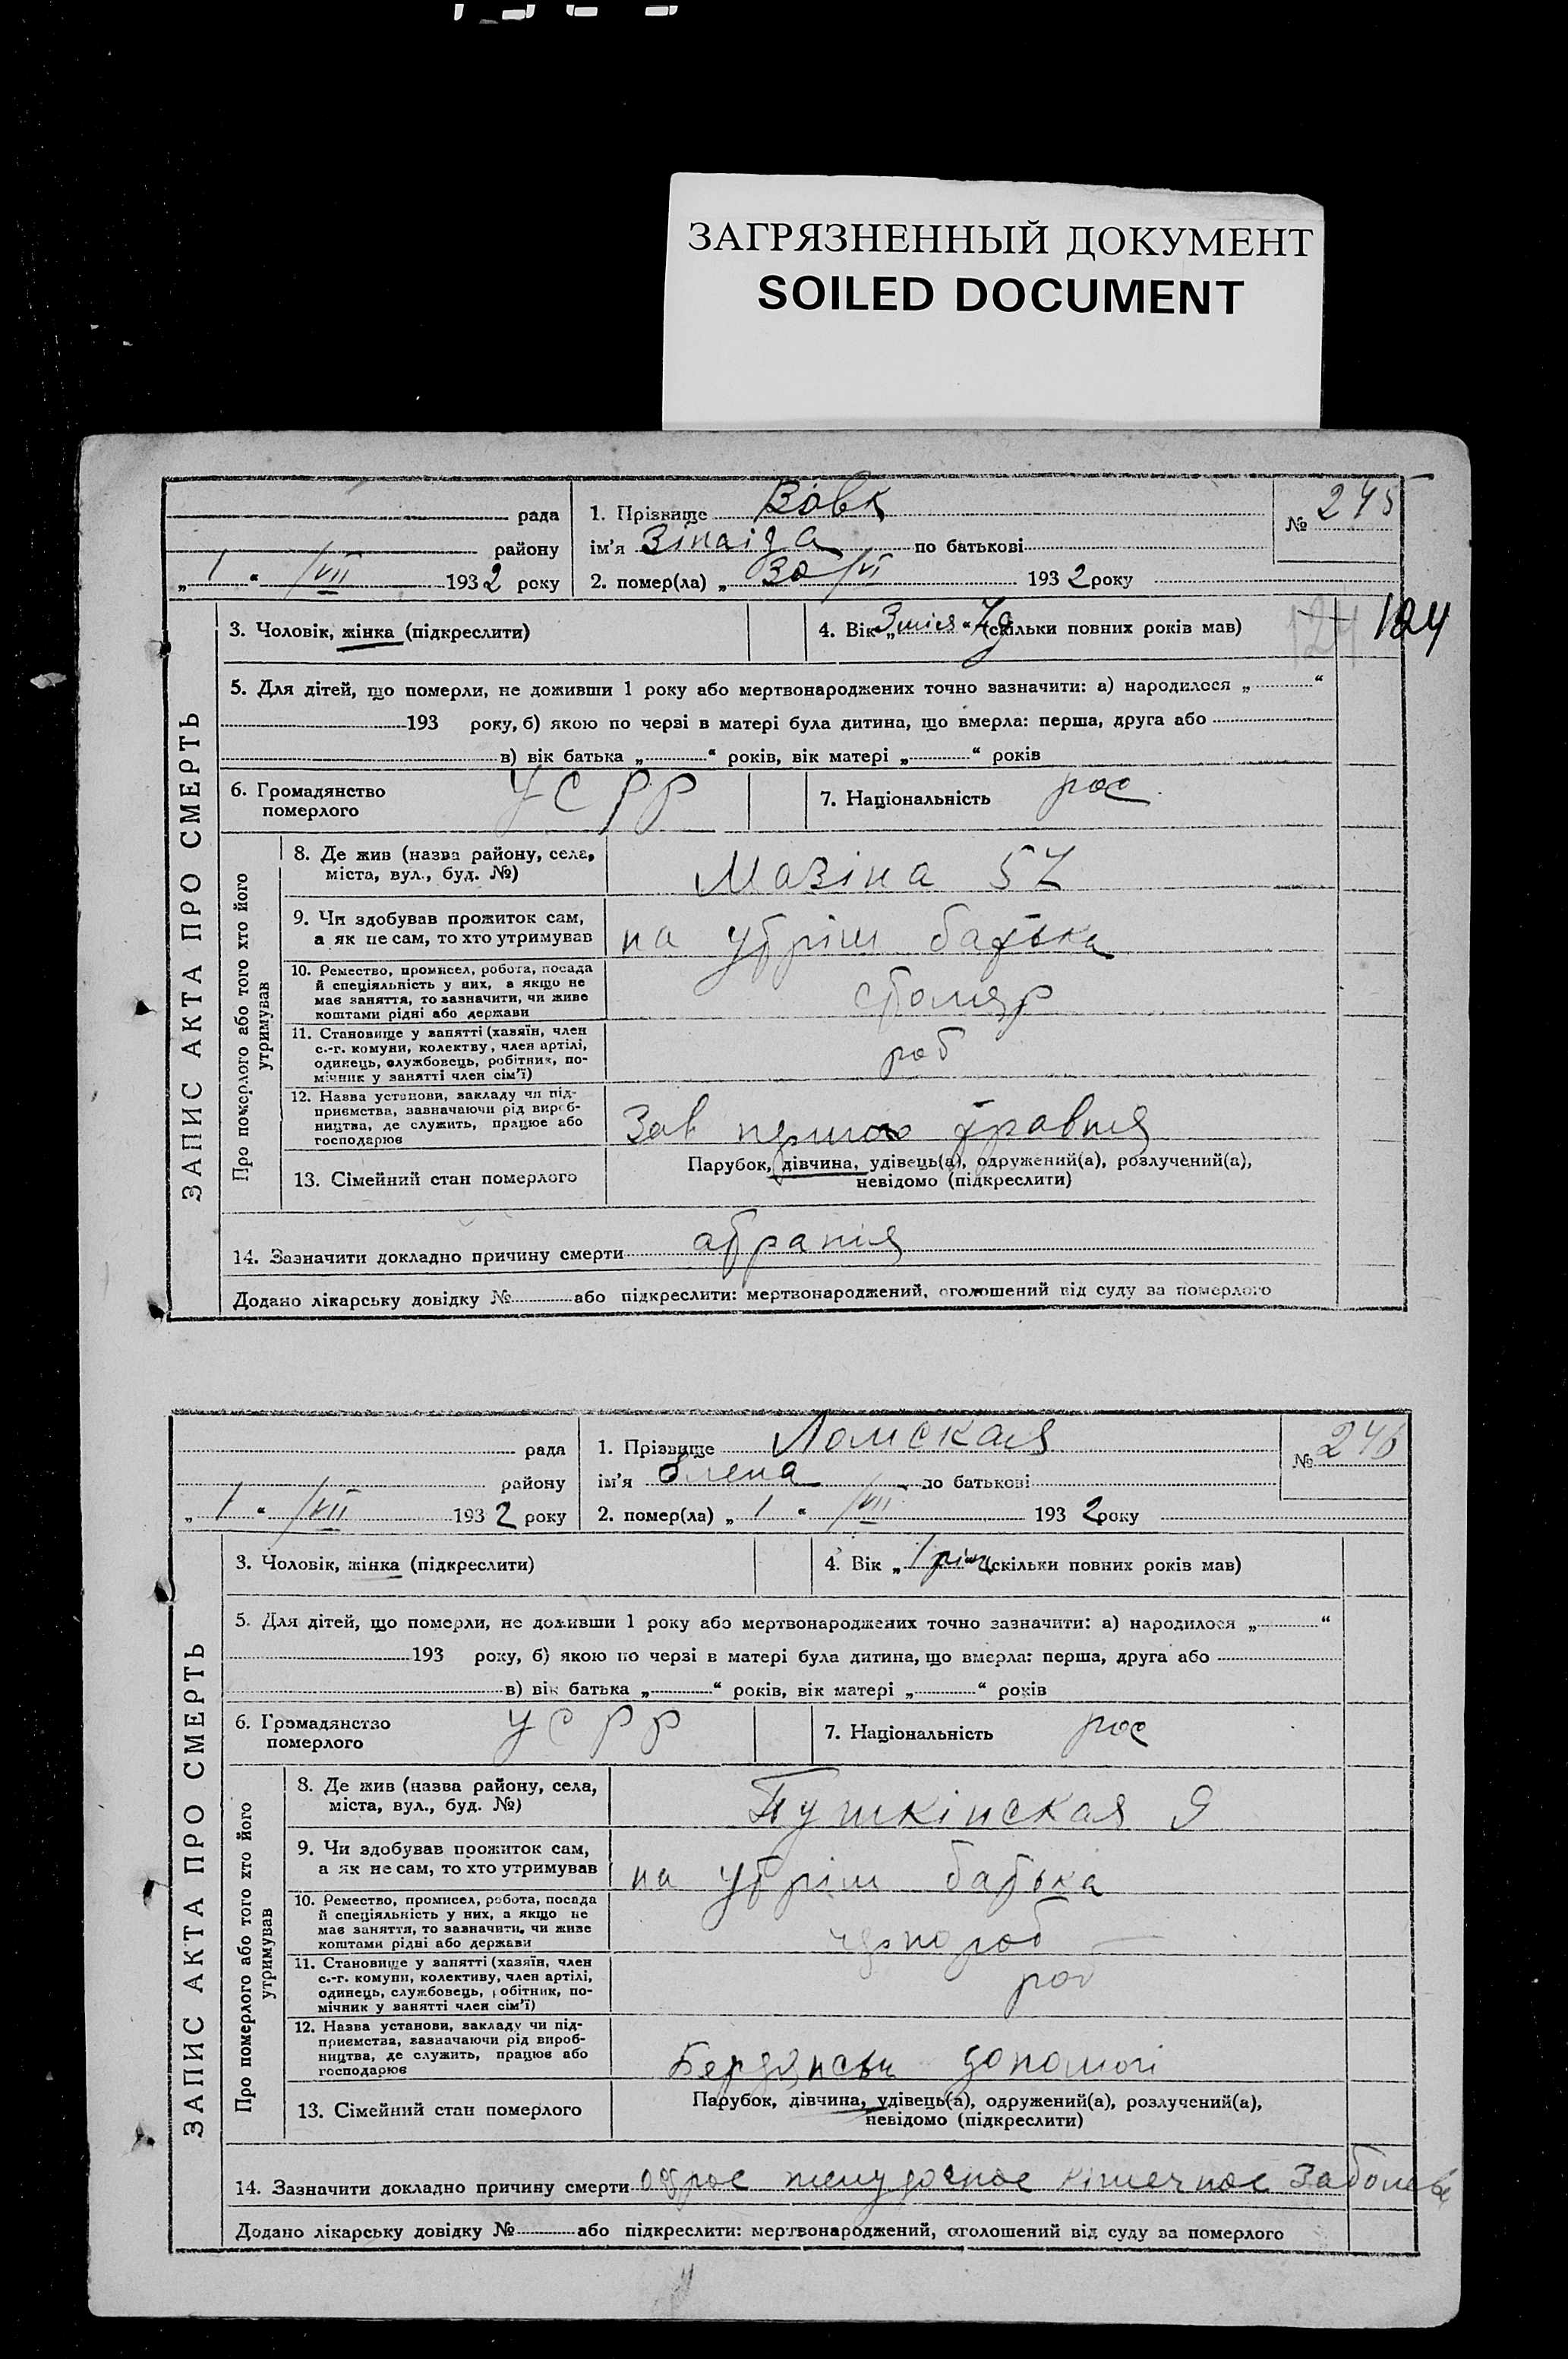 ЗАГРЯЗНЕННЫЙ ДОКУМЕНТ
SOILED DOCUMENT
рада
району
„ 1 “ /VII 1932 року
1. Прізвище Вовк
ім'я Зінаїда по батькові
2. помер(ла) „ 30/VI 1932 року
№ 245
ЗАПИС АКТА ПРО СМЕРТЬ
3. Чоловік, жінка (підкреслити)
4. Вік „ 3 міся 7д “ (скільки повних років мав)
124 124
5. Для дітей, що померли, не доживши 1 року або мертвонароджених точно зазначити: а) народилося „ “
193 року, б) якою по черзі в матері була дитина, що вмерла: перша, друга або
в) вік батька „ “ років, вік матері „ “ років
6. Громадянство
померлого
УСРР
7. Національність рос
Про померлого або того хто його
утримував
8. Де жив (назва району, села,
міста, вул., буд. №)
Мазіна 57
9. Чи здобував прожиток сам,
а як не сам, то хто утримував
на утрім батька
10. Ремество, промисел, робота, посада
й спеціяльність у них, а якщо не
має заняття, то зазначити, чи живе
коштами рідні або держави
столяр
11. Становище у занятті (хазяїн, член
с.-г. комуни, колективу, член артілі,
одинець, службовець, робітник, по-
мічник у занятті член сім'ї)
роб
12. Назва установи, закладу чи під-
приємства, зазначаючи рід вироб-
ництва, де служить, працює або
господарює
Зав першого травня
13. Сімейний стан померлого
Парубок, дівчина, удівець(а), одружений(а), розлучений(а),
невідомо (підкреслити)
14. Зазначити докладно причину смерти атрапія
Додано лікарську довідку № або підкреслити: мертвонароджений, оголошений від суду за померлого
рада
району
„ 1 “ /VII 1932 року
1. Прізвище Ломская
ім'я Олена по батькові
2. помер(ла) „ 1 “ /VII 1932 року
№ 246
ЗАПИС АКТА ПРО СМЕРТЬ
3. Чоловік, жінка (підкреслити)
4. Вік „ 1 рік “ (скільки повних років мав)
5. Для дітей, що померли, не доживши 1 року або мертвонароджених точно зазначити: а) народилося „ “
193 року, б) якою по черзі в матері була дитина, що вмерла: перша, друга або
в) вік батька „ “ років, вік матері „ “ років
6. Громадянство
померлого
УСРР
7. Національність рос
Про померлого або того хто його
утримував
8. Де жив (назва району, села,
міста, вул., буд. №)
Пушкінская 9
9. Чи здобував прожиток сам,
а як не сам, то хто утримував
на утрім батька
10. Ремество, промисел, робота, посада
й спеціяльність у них, а якщо не
має заняття, то зазначити, чи живе
коштами рідні або держави
чернороб
11. Становище у занятті (хазяїн, член
с.-г. комуни, колективу, член артілі,
одинець, службовець, робітник, по-
мічник у занятті член сім'ї)
роб
12. Назва установи, закладу чи під-
приємства, зазначаючи рід вироб-
ництва, де служить, працює або
господарює
допомогі
13. Сімейний стан померлого
Парубок, дівчина, удівець(а), одружений(а), розлучений(а),
невідомо (підкреслити)
14. Зазначити докладно причину смерти острое желудочное кішечное Заболев
Додано лікарську довідку № або підкреслити: мертвонароджений, оголошений від суду за померлого